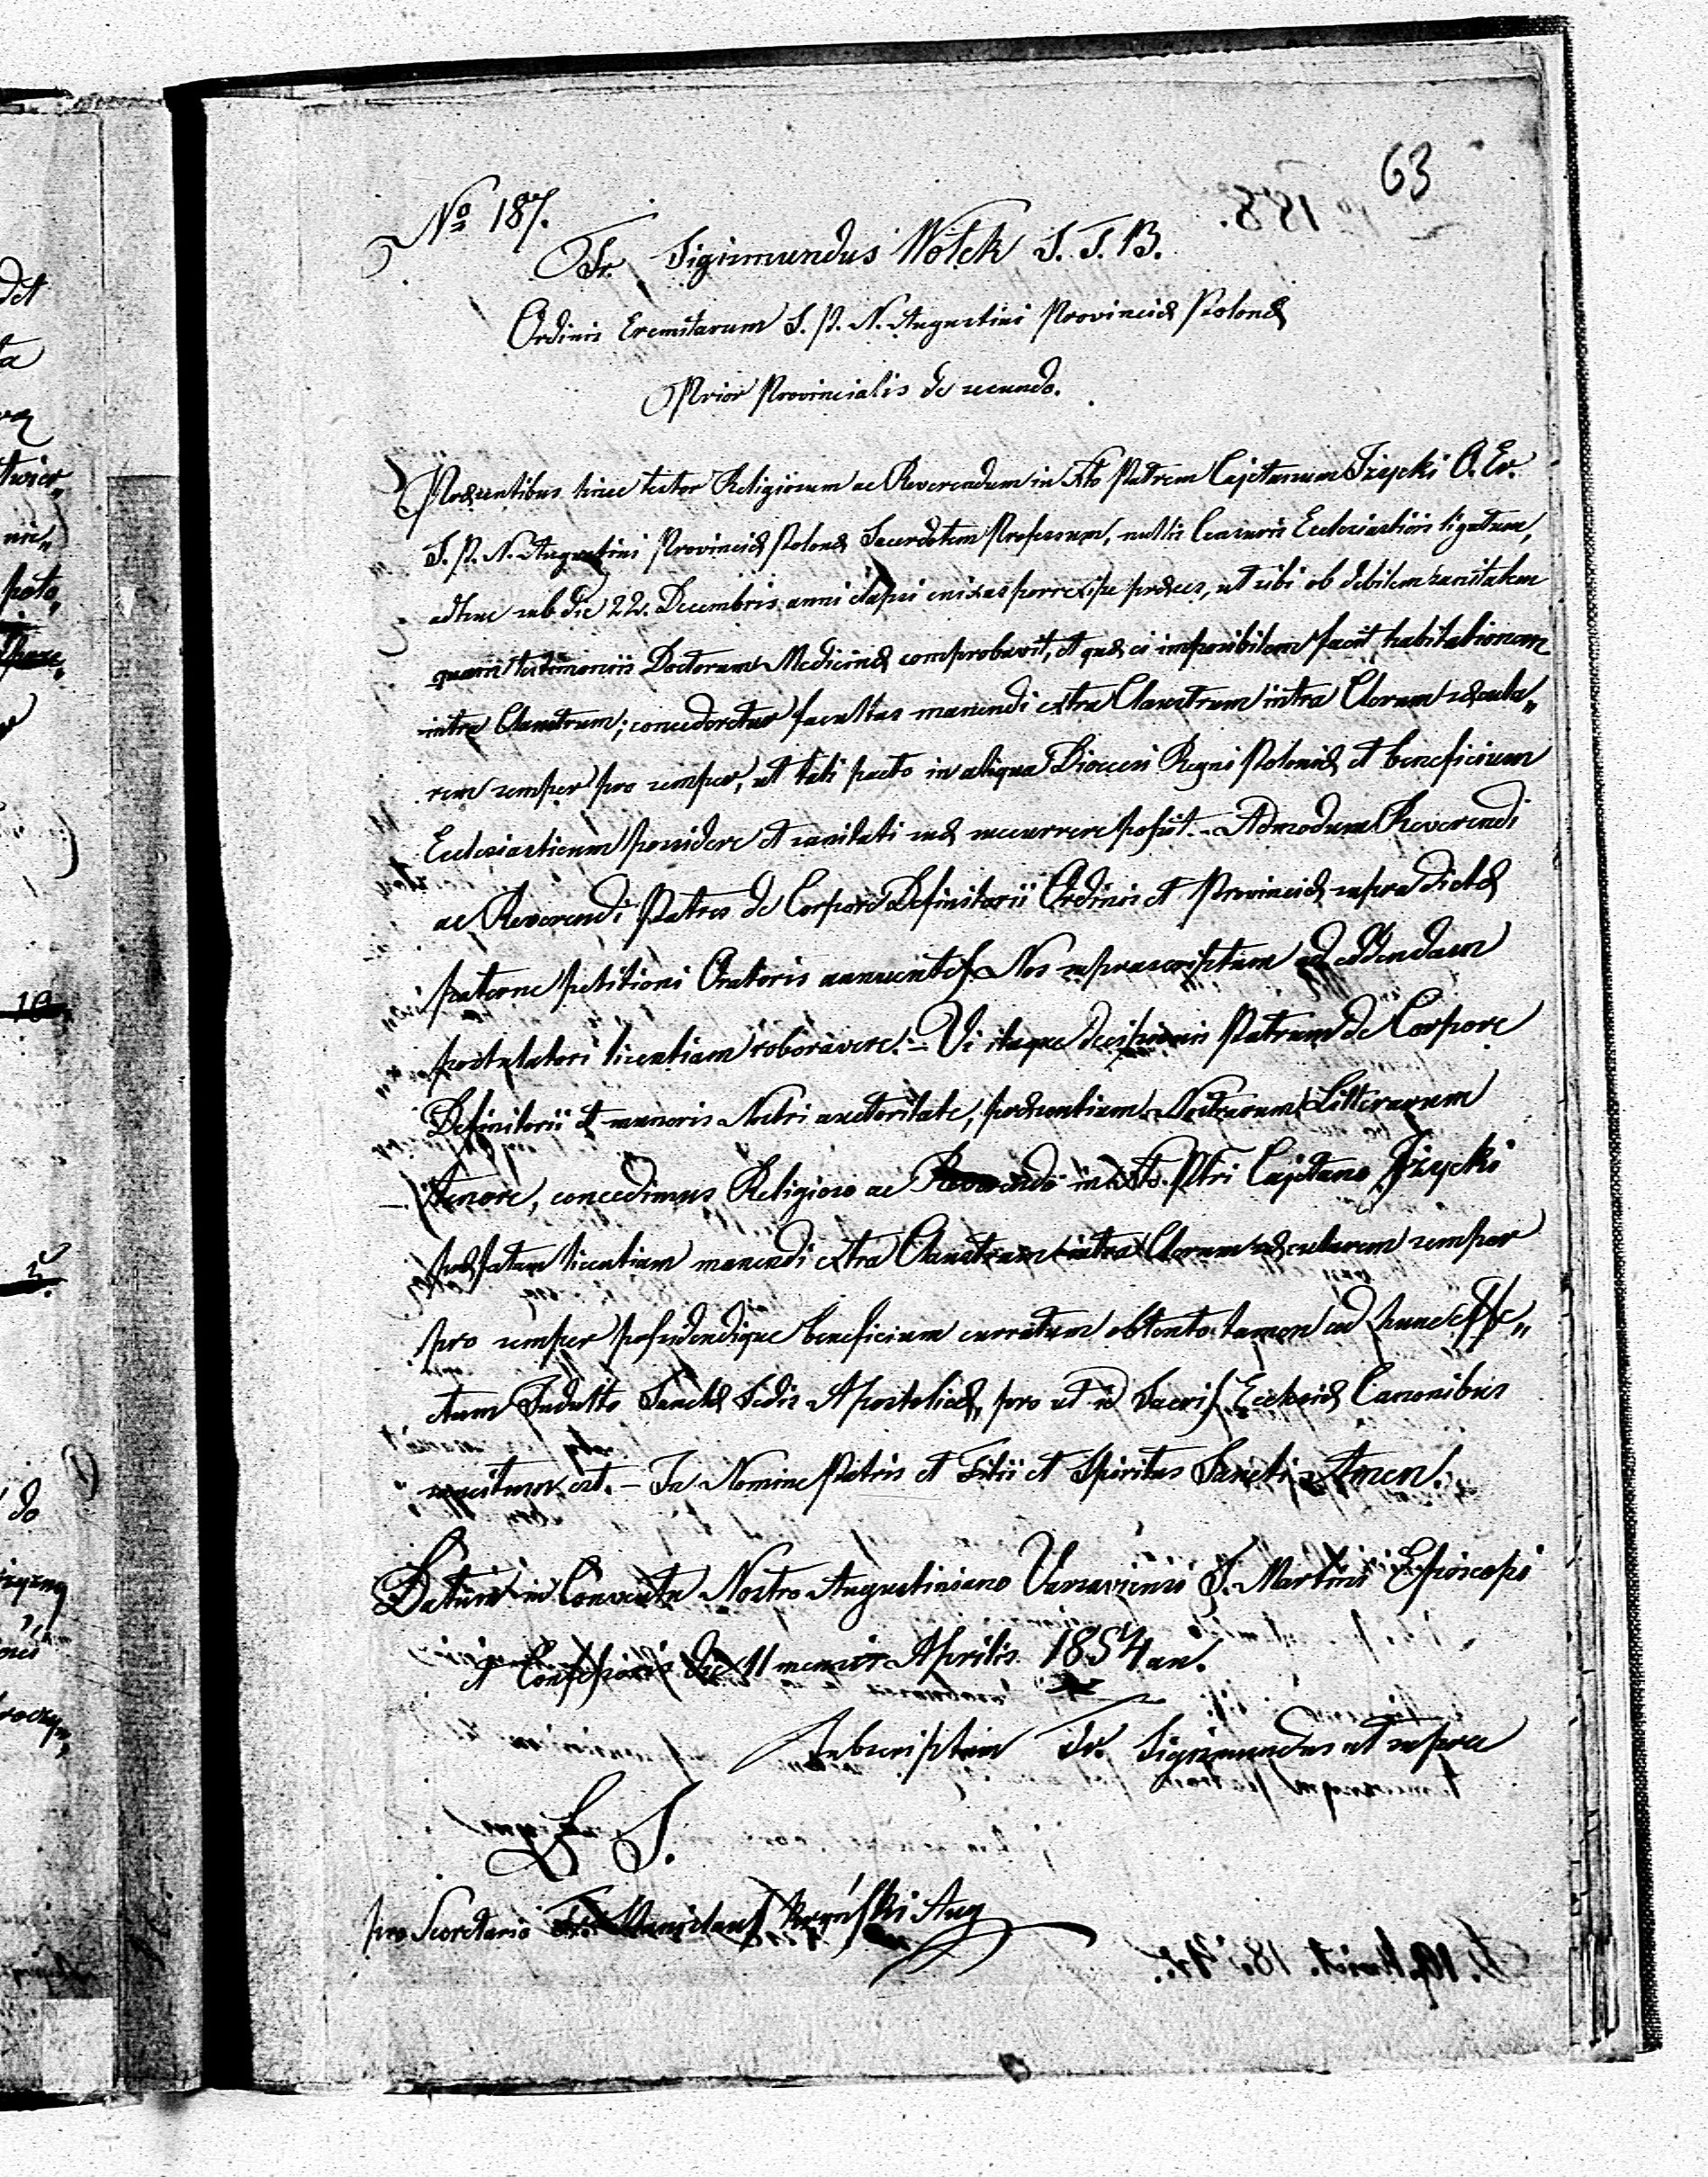 63
№ 187.
Fr. Sigismundus Wołek S. T. B.
Ordinis Eremitarum S. P. N. Augustini Provinciæ Polonæ
Prior Provincialis de secundo.
Præsentibus hisce testor Religiosum ac Reverendum in Xto Patrem Cajetanum Izycki O. Er.
S. P. N. Augustini Provinciæ Polonæ Sacerdotem Professum, nullis Censuris Ecclesiasticis ligatum,
adhuc sub die 22. Decembris anni elapsi enixas porrexisse præces, ut sibi ob debilem sanitatem
quam testimoniis Doctorum Medicinæ comprobavit, et quæ ei impossibilem facit habitationem
intra Claustrum; concederetur facultas manendi extra Claustrum intra Clerum sæcula„
rem semper pro semper, ut tali pacto in aliqua Diœcesi Regni Poloniæ et beneficium
Ecclesiasticum possidere et sanitati suæ succurrere possit. – Admodum Reverendi
ac Reverendi Patres de Corpore Definitorii Ordinis et Provinciæ supradictæ
paterne petitioni Oratoris annuentes Nos suprascriptum ad eddendam
postulatori licentiam roboravere. – Vi itaque decisionis Patrum de Corpore
Definitorii et muneris Nostri auctoritate, præsentium Nostrarum Litterarum
tenore, concedimus Religioso ac Reverendo in Xto Ptri Cajetano Izycki
præfatam licentiam manendi extra Claustrum intra Clerum sæcularem semper
pro semper possidendique beneficium curatum obtento tamen ad hunc effe„
ctum Indulto Sanctæ Sedis Apostolicæ, pro ut id Sacris Ecclesiæ Canonibus
sancitum est. – In Nomine Patris et Filii et Spiritus Sancti Amen.
Datum in Conventu Nostro Augustiniano Varsaviensi S. Martini Episcopi
et Confessoris die 11 mensis Aprilis 1854 an.
Subscriptum Fr. Sigismundus ut supra
L. S.
pro Secretario Fr. Stanislaus Aug